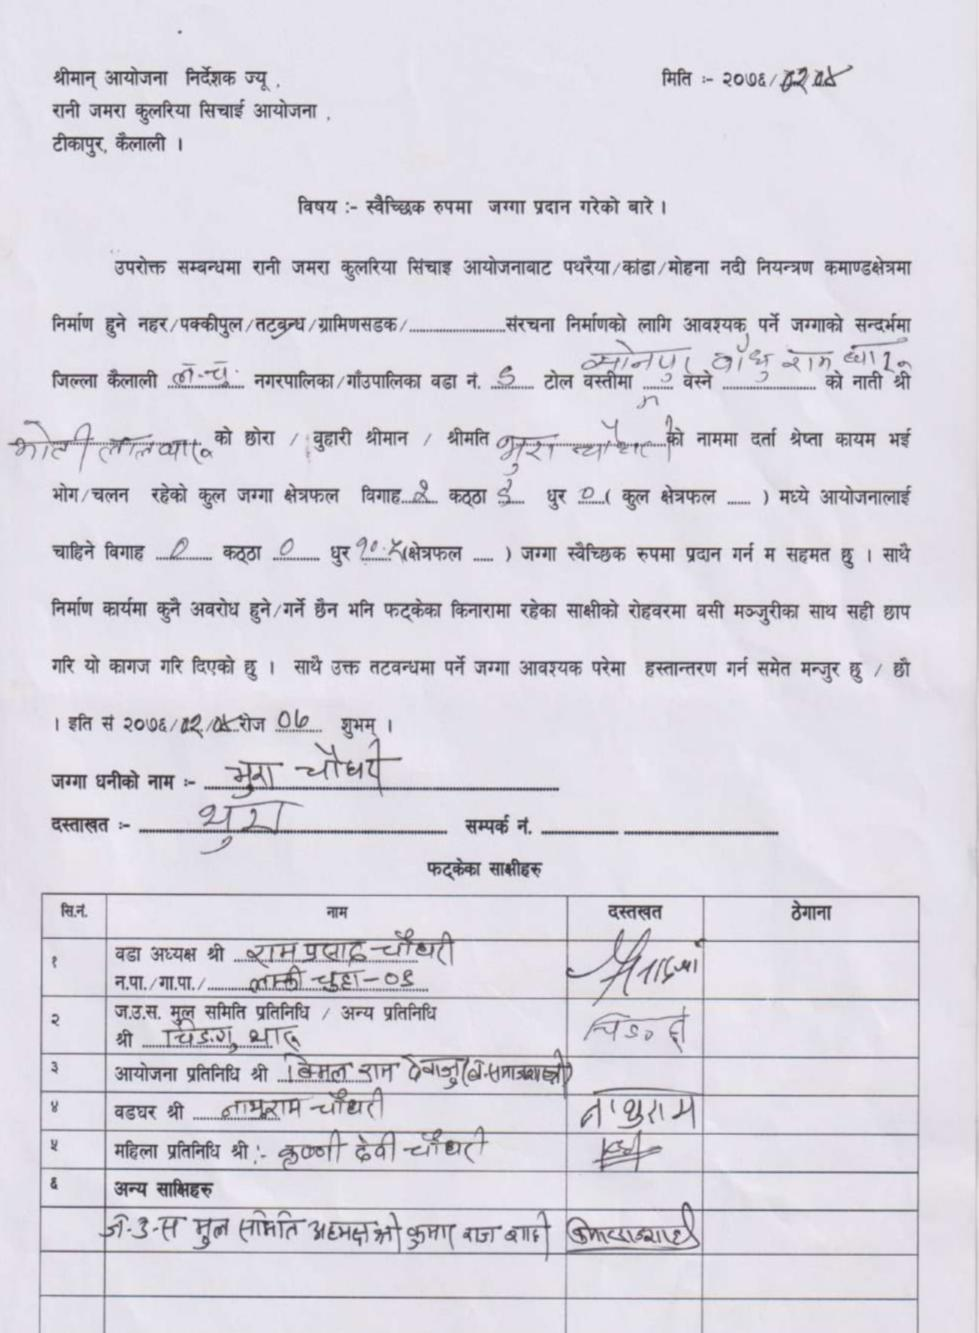 श्रीमान् आयोजना निर्देशक ज्यू ,
मिति :- २०७६/०२/०४
रानी जमरा कुलरिया सिचाई आयोजना ,
टीकापुर, कैलाली ।
विषय :- स्वैच्छिक रुपमा जग्गा प्रदान गरेको बारे ।
उपरोक्त सम्बन्धमा रानी जमरा कुलरिया सिचाइ आयोजनाबाट पथरैया/कांडा/मोहना नदी नियन्त्रण कमाण्डक्षेत्रमा
निर्माण हुने नहर/पक्कीपुल/तटबन्ध/ग्रामिणसडक/....................संरचना निर्माणको लागि आवश्यक पर्ने जग्गाको सन्दर्भमा
जिल्ला कैलाली ल.चु. नगरपालिका/गाँउपालिका वडा नं. ६ टोल वस्तीमा सोनपुर वस्ने राम थारु को नाती श्री
मोती लाल थारु को छोरा / बुहारी श्रीमान / श्रीमति भुरा चौधरी को नाममा दर्ता श्रेष्ता कायम भई
भोग/चलन रहेको कुल जग्गा क्षेत्रफल विगाह २ कठ्ठा ६ धुर ० ( कुल क्षेत्रफल ...... ) मध्ये आयोजनालाई
चाहिने विगाह ० कठ्ठा ० धुर १०.५ (क्षेत्रफल ..... ) जग्गा स्वैच्छिक रुपमा प्रदान गर्न म सहमत छु । साथै
निर्माण कार्यमा कुनै अवरोध हुने/गर्ने छैन भनि फट्केका किनारामा रहेका साक्षीको रोहवरमा वसी मञ्जुरीका साथ सही छाप
गरि यो कागज गरि दिएको छु । साथै उक्त तटवन्धमा पर्ने जग्गा आवश्यक परेमा हस्तान्तरण गर्न समेत मन्जुर छु / छौ
। इति सं २०७६/०२/०४ रोज ०७ शुभम् ।
जग्गा धनीको नाम :- भुरा चौधरी
दस्ताखत :- भुरा सम्पर्क नं. ..................
फट्केका साक्षीहरु
सि.नं. नाम दस्तखत ठेगाना
१ वडा अध्यक्ष श्री राम प्रसाद चौधरी
न.पा./गा.पा./ लम्की चुहा-०६
२ ज.उ.स. मुल समिति प्रतिनिधि / अन्य प्रतिनिधि
श्री चिङगु थारु
३ आयोजना प्रतिनिधि श्री बिमल राम
४ वडघर श्री नाथुराम चौधरी नाथुराम
५ महिला प्रतिनिधि श्री :- कृष्णी देवी चौधरी
६ अन्य साक्षिहरु
ज-उ-स मुल समिति अध्यक्ष श्री कुमार राज शाही